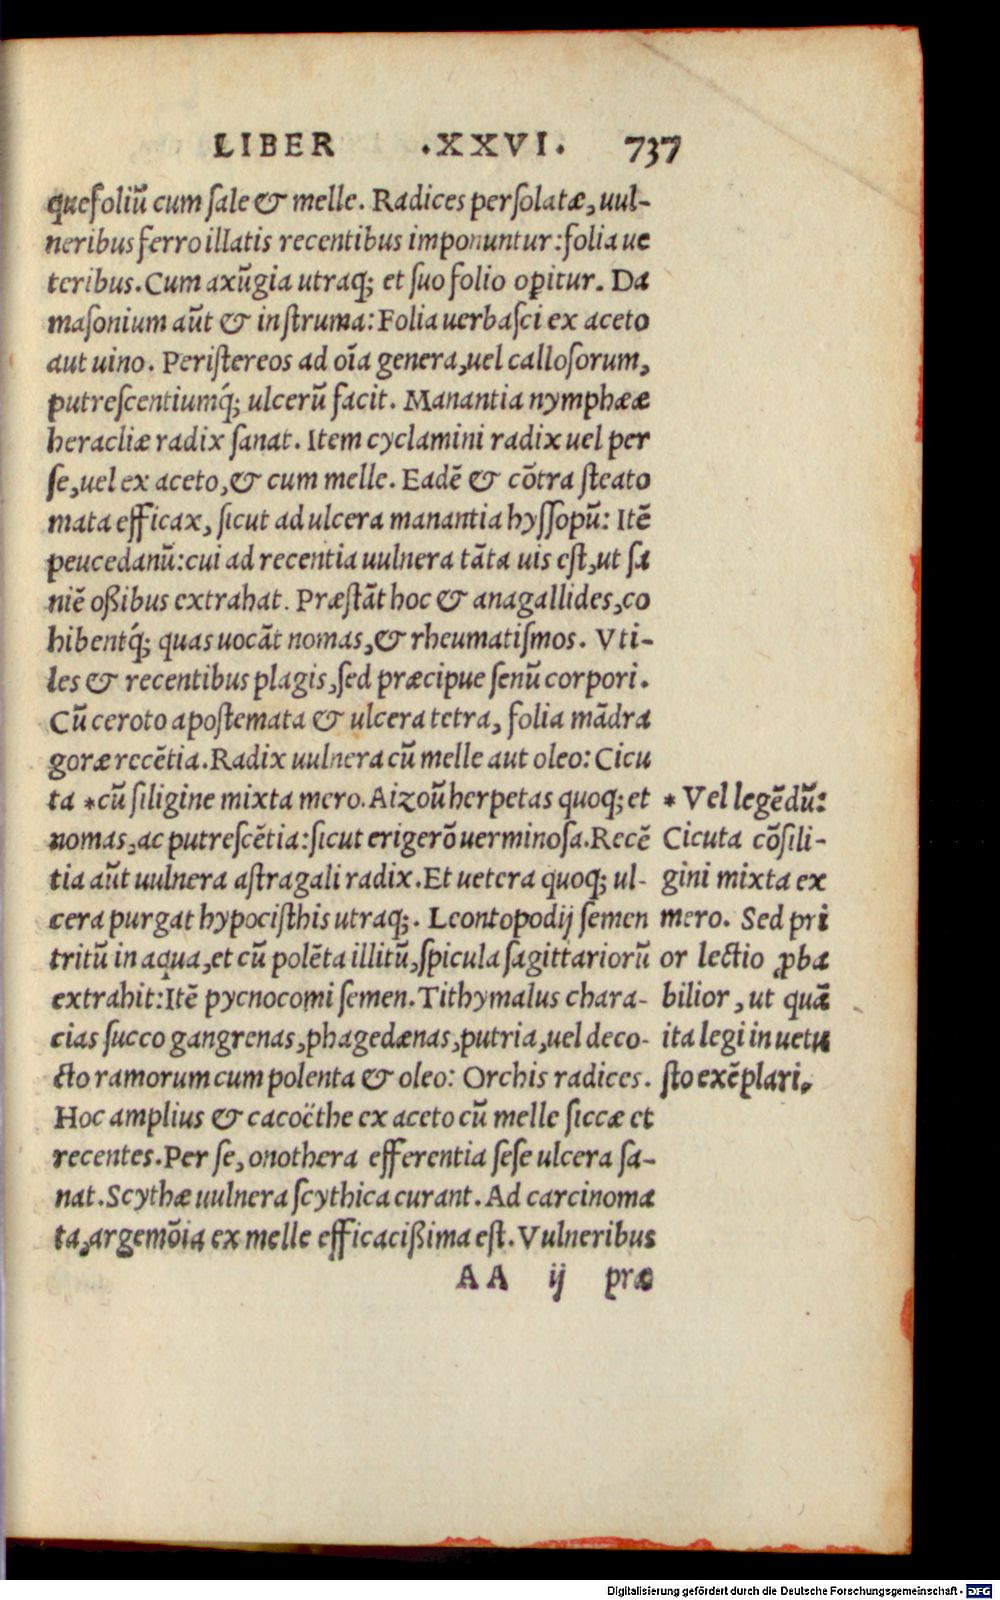 LIBER .XXVI. 737
quefoliū cum sale & melle. Radices persolatæ, uul-
neribus ferro illatis recentibus imponuntur: folia ue
teribus. Cum axūgia utraq; et suo folio oꝑitur. Da
masonium aūt & in struma: Folia uerbasci ex aceto
aut uino. Peristereos ad oīa genera, uel callosorum,
putrescentiumq́; ulcerū facit. Manantia nymphææ
heracliæ radix sanat. Item cyclamini radix uel per
se, uel ex aceto, & cum melle. Eadē & cōtra steato
mata efficax, sicut ad ulcera manantia hyssopū: Itē
peucedanū: cui ad recentia uulnera tāta uis est, ut sa
niē oßibus extrahat. Præstāt hoc & anagallides, co
hibentq́; quas uocāt nomas, & rheumatismos. Vti-
les & recentibus plagis, sed præcipue senū corpori.
Cū ceroto apostemata & ulcera tetra, folia mādra
goræ recētia. Radix uulnera cū melle aut oleo: Cicu
ta *cū siligine mixta mero. Aizoū herpetas quoq; et
nomas, ac putrescētia: sicut erigerō uerminosa. Recē
tia aūt uulnera astragali radix. Et uetera quoq; ul-
cera purgat hypocisthis utraq;. Leontopodij semen
tritū in aqua, et cū polēta illitū, spicula sagittariorū
extrahit: Itē pycnocomi semen. Tithymalus chara-
cias succo gangrenas, phagedænas, putria, uel deco-
cto ramorum cum polenta & oleo: Orchis radices.
Hoc amplius & cacoëthe ex aceto cū melle siccæ et
recentes. Per se, onothera efferentia sese ulcera sa-
nat. Scythæ uulnera scythica curant. Ad carcinoma
ta, argemōia ex melle efficacißima est. Vulneribus
AA ij præ
* Vel legēdū:
Cicuta cōsili-
gini mixta ex
mero. Sed pri
or lectio ꝓba
bilior, ut quā
ita legi in uetu
sto exēplari.
Digitalisierung gefördert durch die Deutsche Forschungsgemeinschaft - DFG